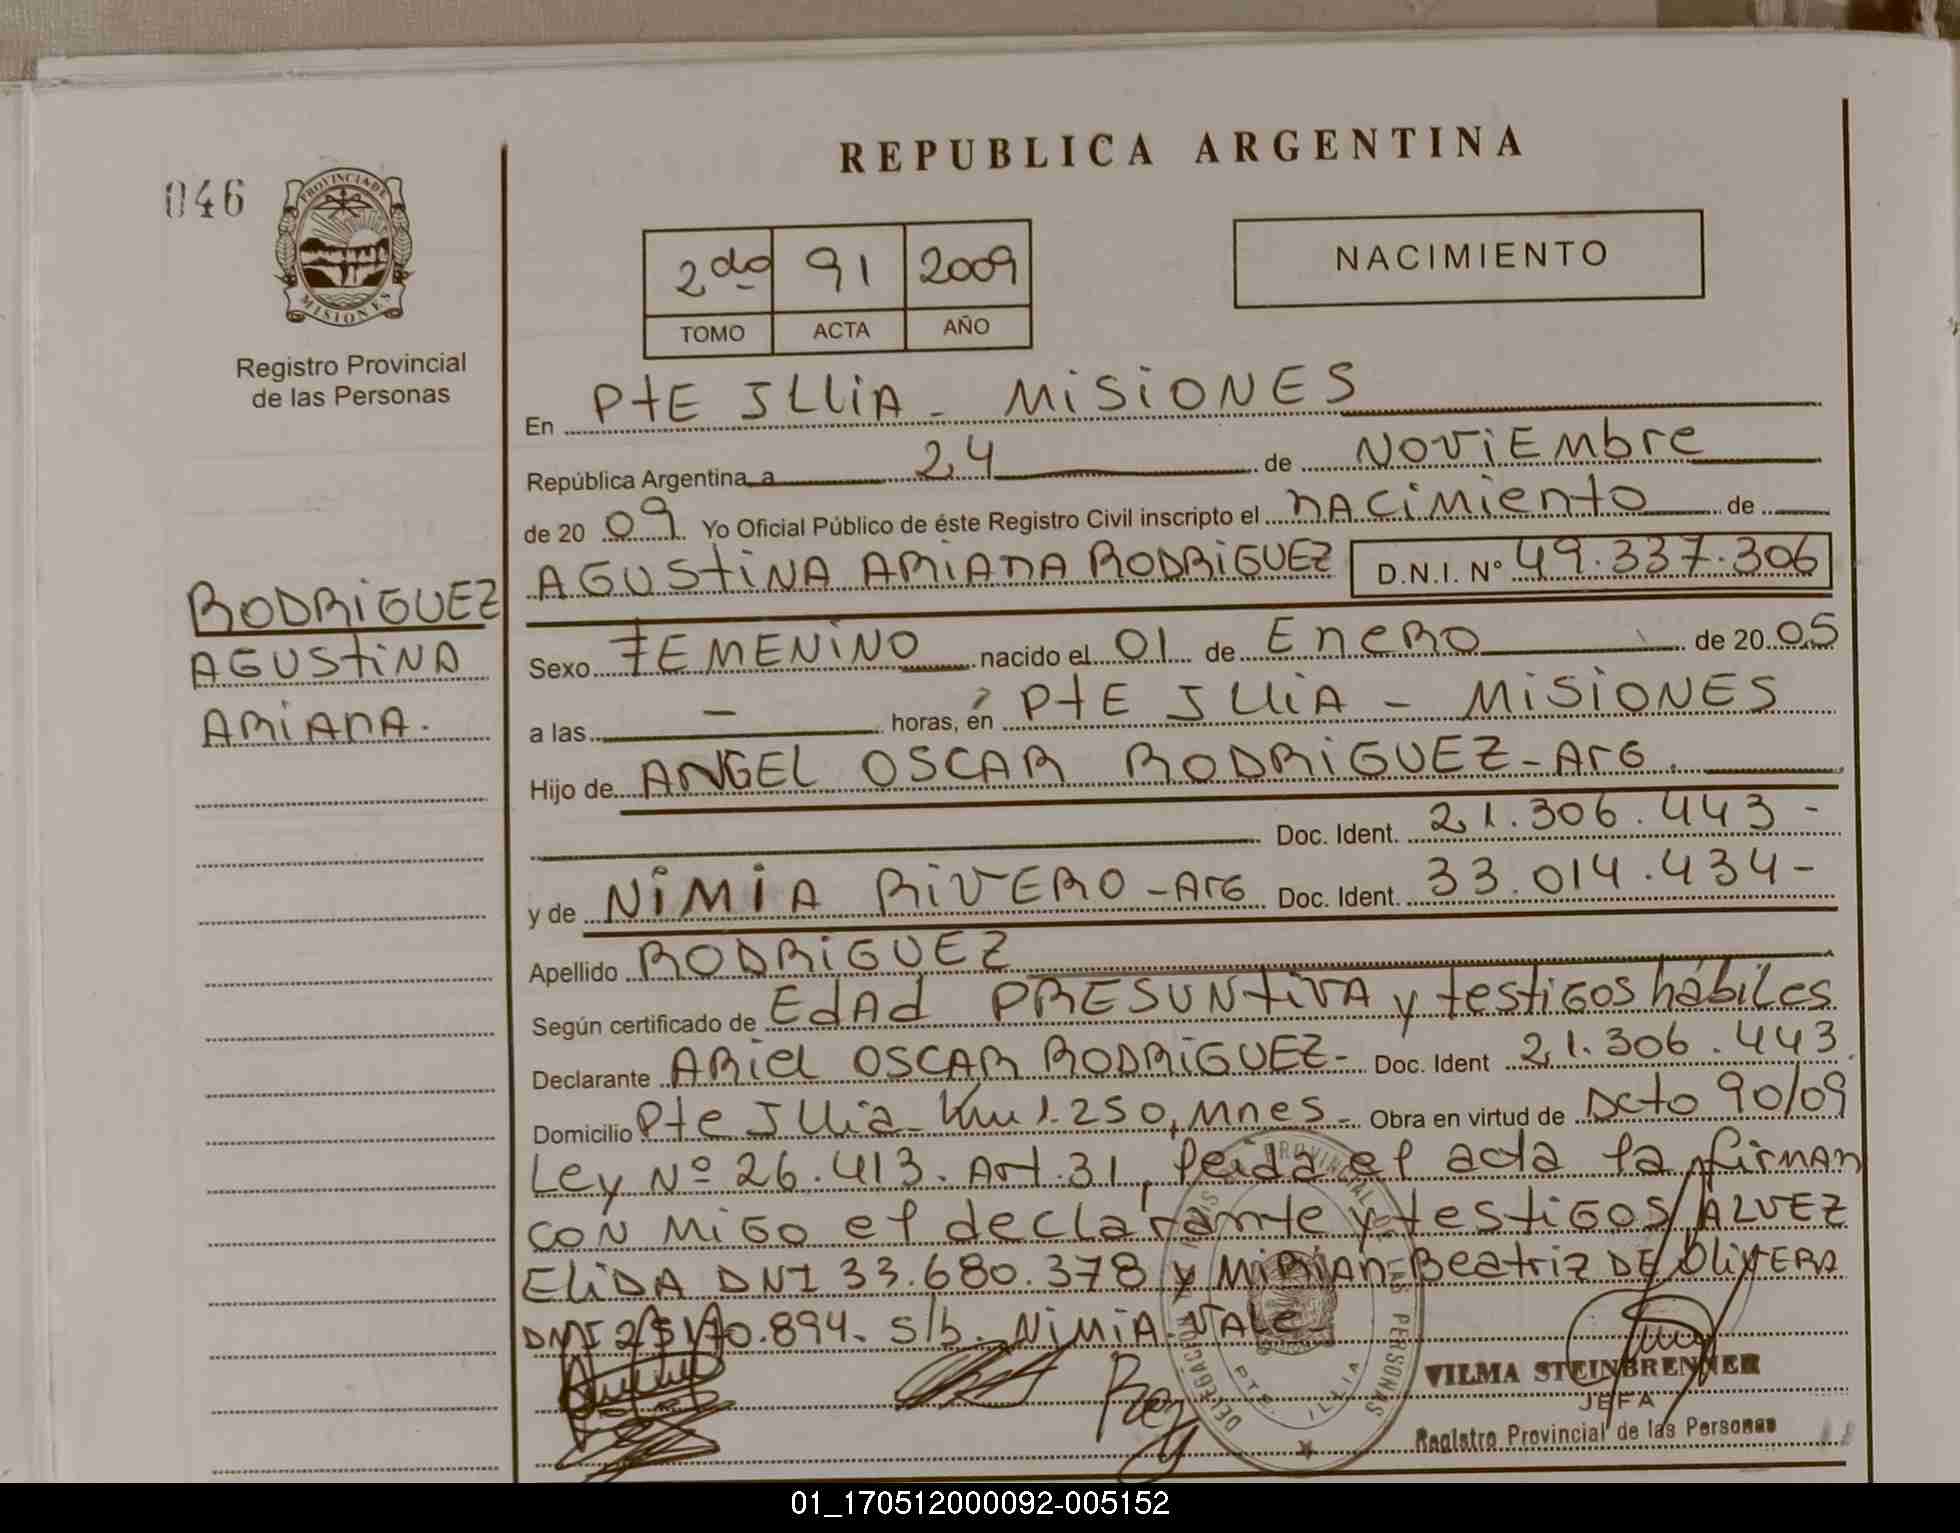 REPUBLICA ARGENTINA
046
PROVINCIA DE
MISIONES
Registro Provincial
de las Personas
2do 91 2009
TOMO ACTA AÑO
NACIMIENTO
En PtE ILLiA - MiSiONES
República Argentina a 24 de NOViEMbre
de 20 09 Yo Oficial Público de éste Registro Civil inscripto el nACiMiento de
AGUStiNA ARiAnA RODRiGUEZ D.N.I. N° 49.337.306
RODRiGUEZ
AGUStiNA
ARiAnA.
Sexo FEMENiNO nacido el 01 de EnERO de 20 05
a las - horas, en PtE ILLiA - MiSiONES
Hijo de ANGEL OSCAR RODRiGUEZ - ArG.
Doc. Ident. 21.306.443 -
y de NiMiA RiVERO - ArG Doc. Ident. 33.014.434 -
Apellido RODRiGUEZ
Según certificado de EdAd PRESUNtiVA y testiGOS hábiLes
Declarante ARiel OSCAR RODRiGUEZ - Doc. Ident 21.306.443
Domicilio Pte ILLia - Km 1.250, Mnes - Obra en virtud de Dcto 90/09
Ley Nº 26.413. Art. 31, leida el acta la firMAN
CON MiGO el declarante y testiGOS ALVEZ
ELiDA DNI 33.680.378 y MiRiAN Beatriz DE OliVERA
DNI 170.894. s/b. NiMiA. VALE
DELEGACION REGIS PROVINCIAL DE LAS PERSONAS
PTE. ILLIA
VILMA STEINBRENNER
JEFA
Registro Provincial de las Personas
01_170512000092-005152